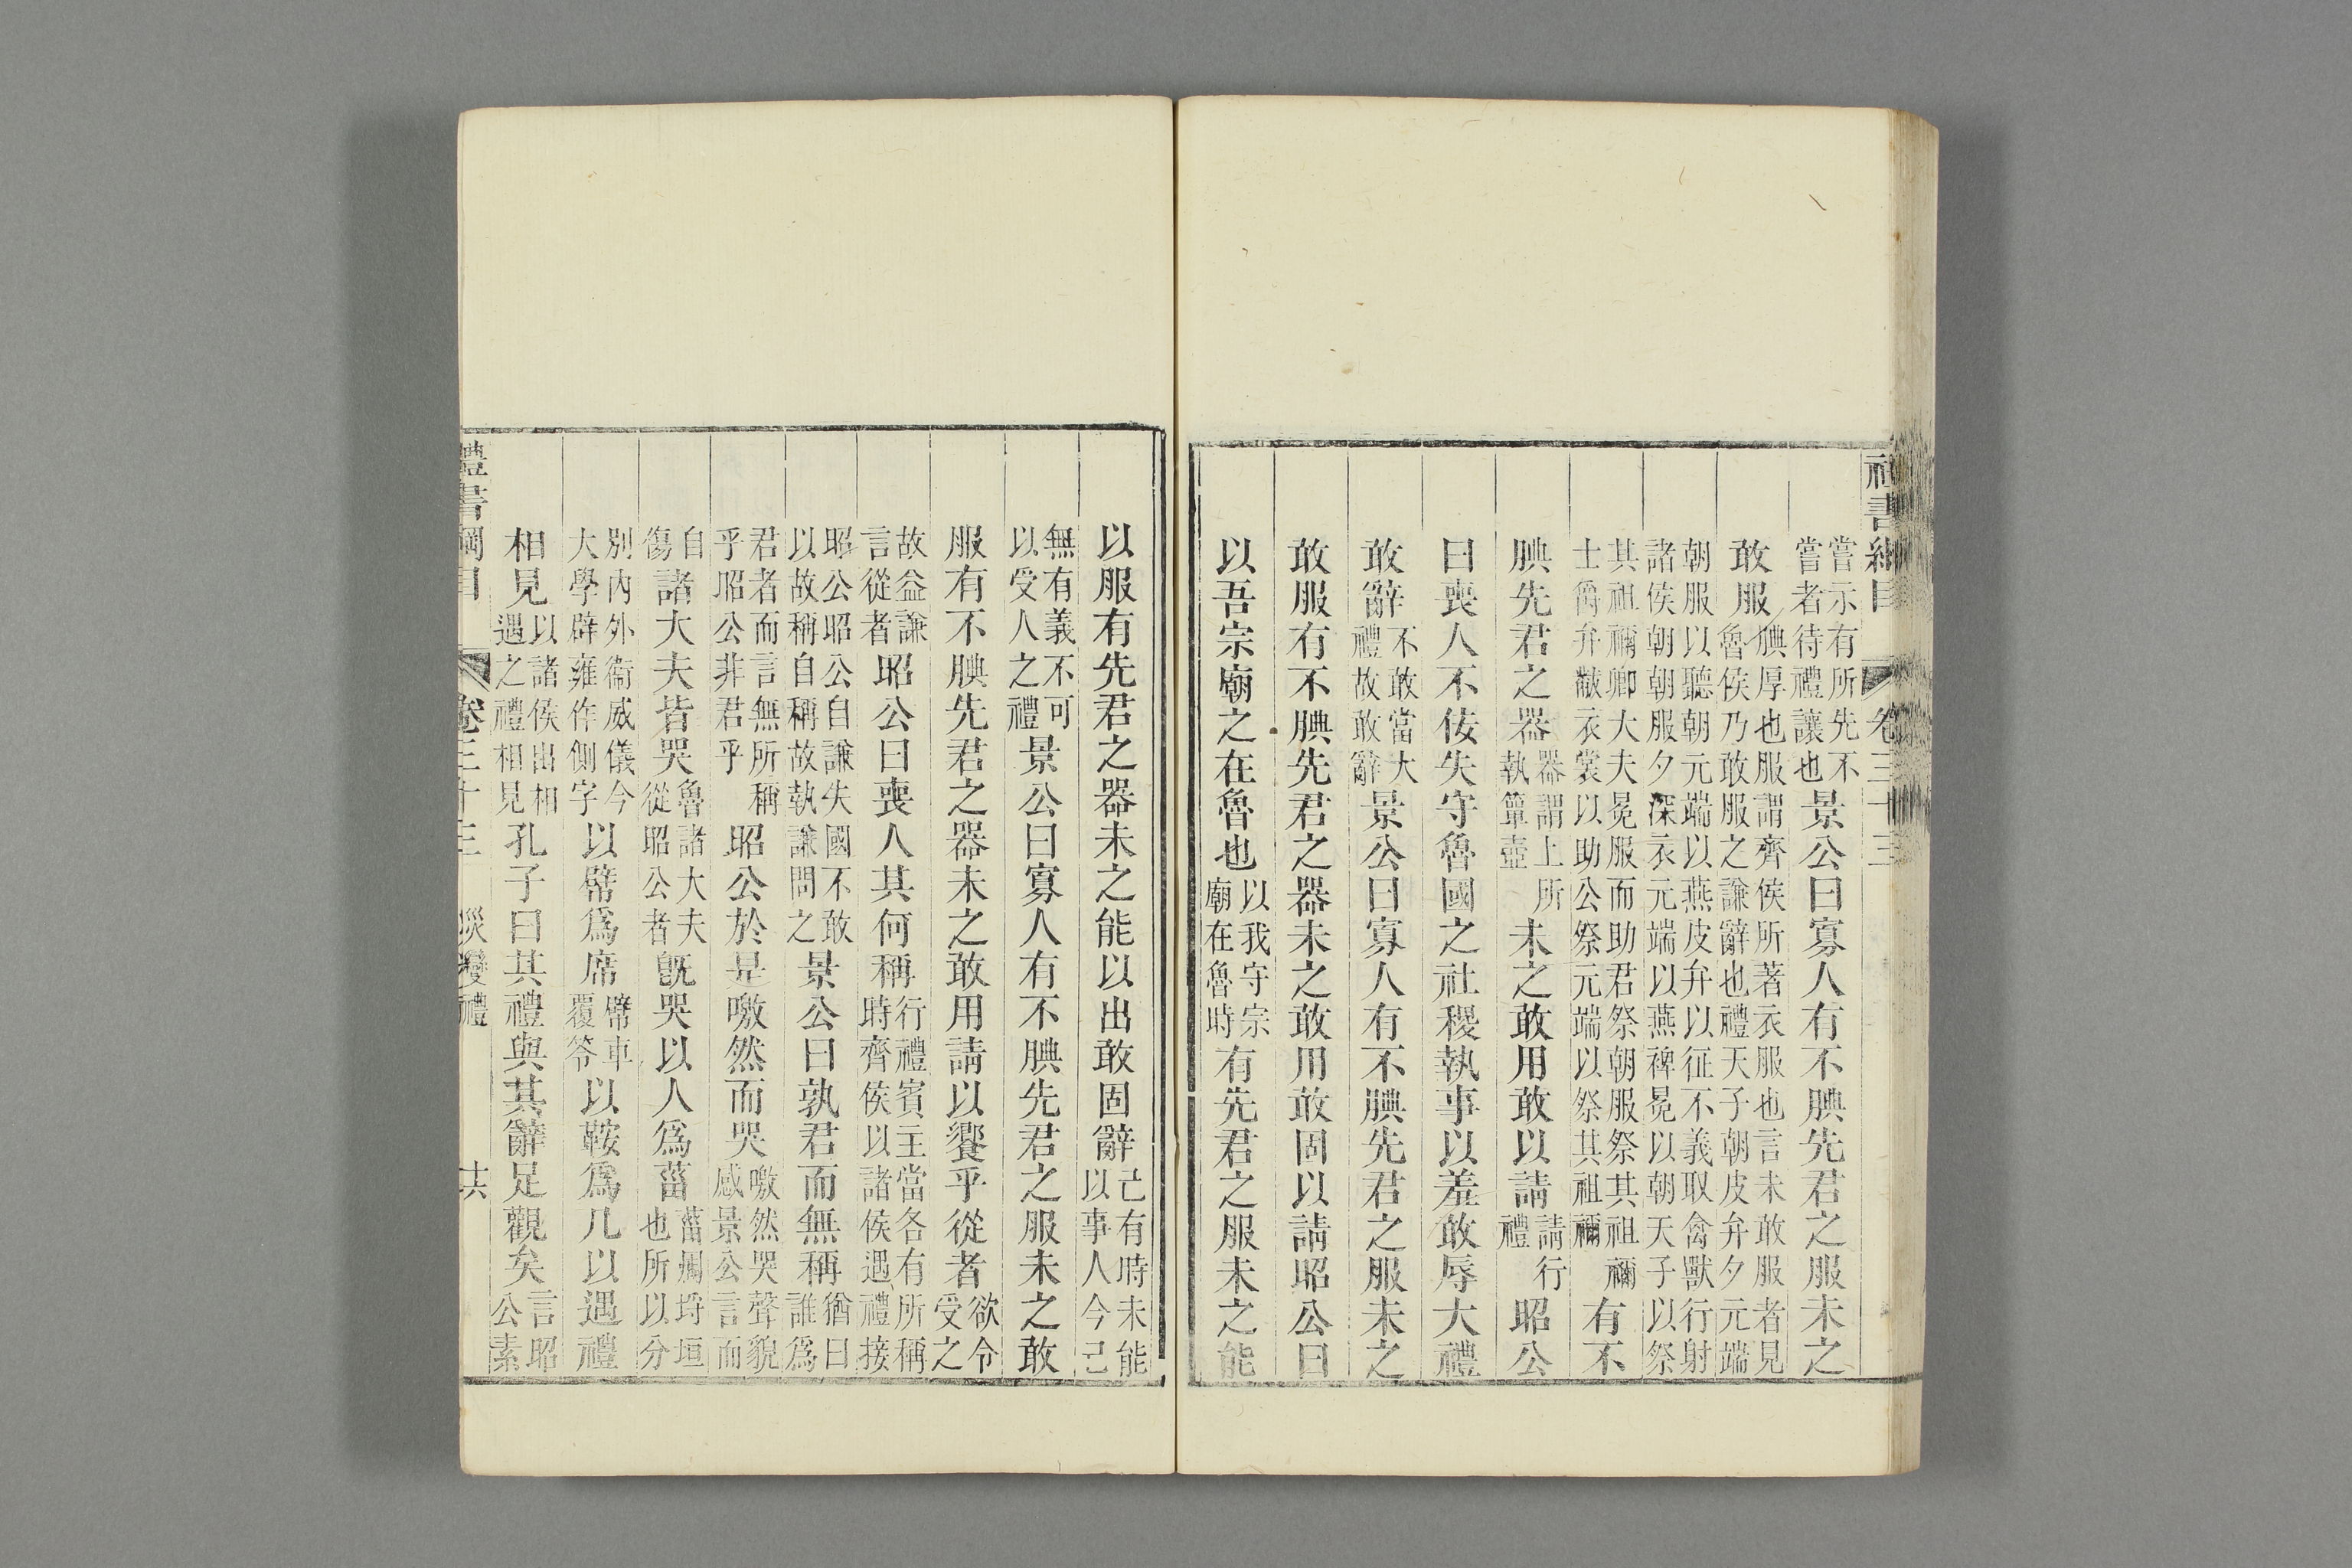 嘗示有所先不
嘗者待禮讓也
景公曰寡人有不腆先君之服未之
敢服
腆厚也服謂齊侯所著衣服也言未敢服者見
魯侯乃敢服之謙辭也禮天子朝皮弁夕元端
朝服以聽朝元端以燕皮弁以征不義取禽獸行射
諸侯朝朝服夕深衣元端以燕裨冕以朝天子以祭
其祖禰卿大夫冕服而助君祭朝服祭其祖禰
士爵弁黻衣裳以助公祭元端以祭其祖禰
有不
腆先君之器
器謂上所
執簞壺
未之敢用敢以請
請行
禮
昭公
曰喪人不佞失守魯國之社稷執事以羞敢辱大禮
敢辭
不敢當大
禮故敢辭
景公曰寡人有不腆先君之服未之
敢服有不腆先君之器未之敢用敢固以請昭公曰
以吾宗廟之在魯也
以我守宗
廟在魯時
有先君之服未之能
以服有先君之器未之能以出敢固辭
己有時未能
以事人今己
無有義不可
以受人之禮
景公曰寡人有不腆先君之服未之敢
服有不腆先君之器未之敢用請以饗乎從者
欲令
受之
故益謙
言從者
昭公曰喪人其何稱
行禮賓主當各有所稱
時齊侯以諸侯遇禮接
昭公昭公自謙失國不敢
以故稱自稱故執謙問之
景公曰孰君而無稱
猶曰
誰為
君者而言無所稱
乎昭公非君乎
昭公於是噭然而哭
噭然哭聲貌
感景公言而
自
傷
諸大夫皆哭
魯諸大夫
從昭公者
旣哭以人爲菑
菑周埒垣
也所以分
別內外衛威儀今
大學辟雍作側字
以幦爲席
幦車
覆笭
以鞍爲几以遇禮
相見
以諸侯出相
遇之禮相見
孔子曰其禮與其辭足觀矣
言昭
公素
禮書綱目
卷三十三
災變禮
共